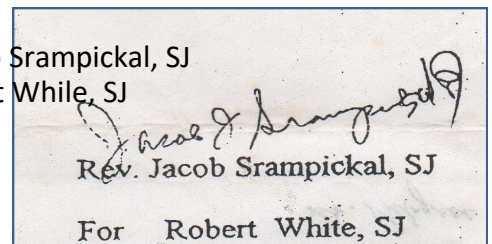 Srampickal, SJ
While, SJ
Jacob J Srampickal
Rev. Jacob Srampickal, SJ
For Robert White, SJ